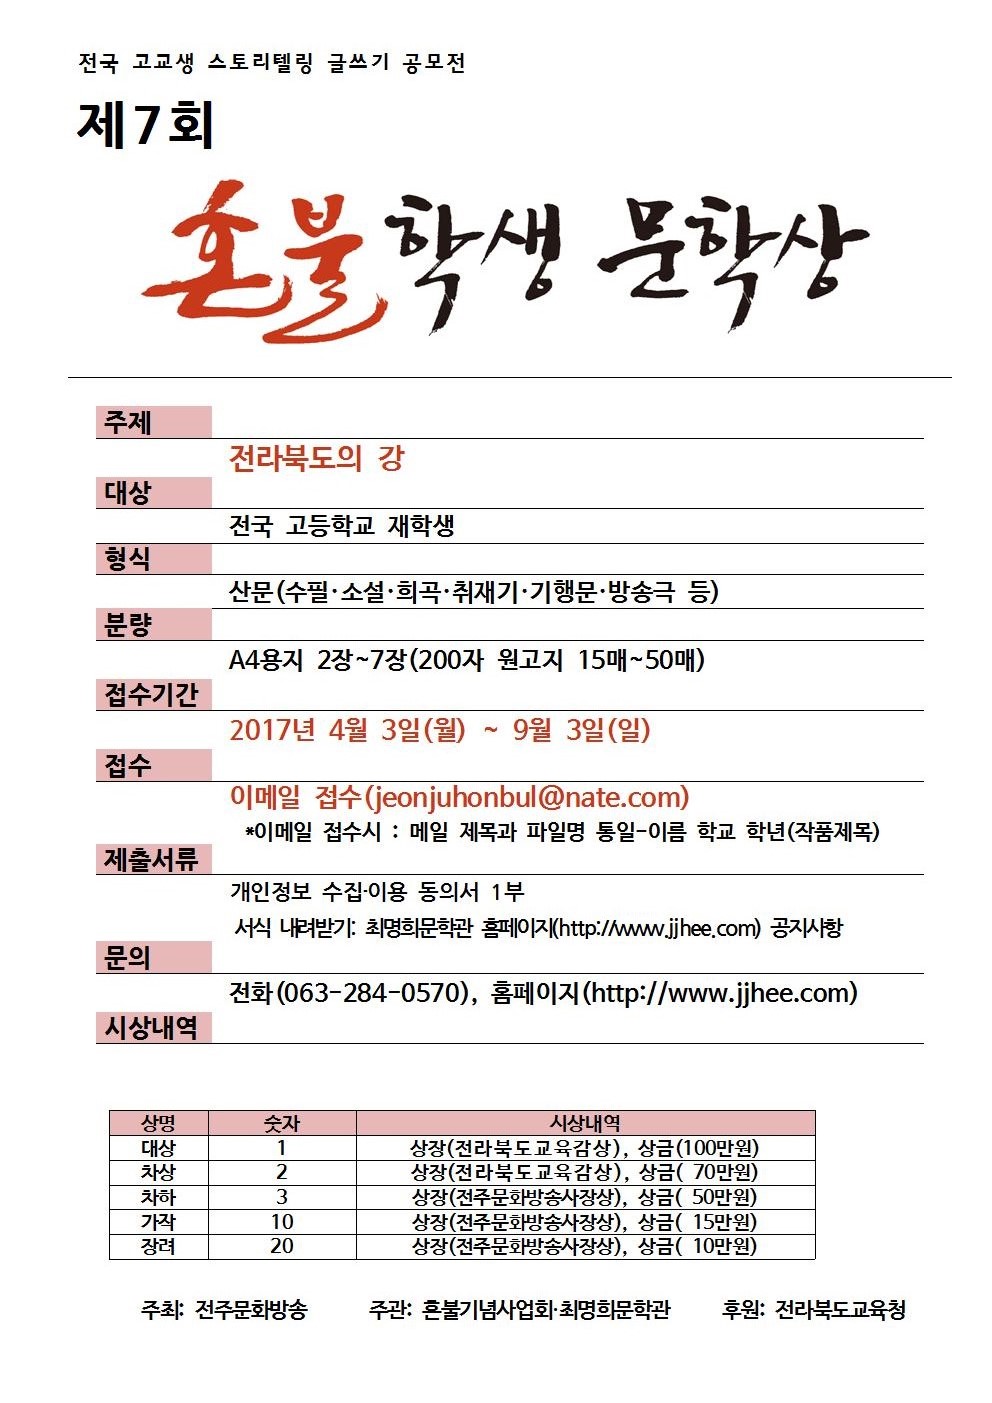 전국 고교생 스토리텔링 글쓰기 공모전
제7회
혼불 학생 문학상
주제
전라북도의 강
대상
전국 고등학교 재학생
형식
산문(수필·소설·희곡·취재기·기행문·방송극 등)
분량
A4용지 2장~7장(200자 원고지 15매~50매)
접수기간
2017년 4월 3일(월) ~ 9월 3일(일)
접수
이메일 접수(jeonjuhonbul@nate.com)
*이메일 접수시 : 메일 제목과 파일명 통일-이름 학교 학년(작품제목)
제출서류
개인정보 수집·이용 동의서 1부
서식 내려받기: 최명희문학관 홈페이지(http://www.jjhee.com) 공지사항
문의
전화(063-284-0570), 홈페이지(http://www.jjhee.com)
시상내역
상명 숫자 시상내역
대상 1 상장(전라북도교육감상), 상금(100만원)
차상 2 상장(전라북도교육감상), 상금( 70만원)
차하 3 상장(전주문화방송사장상), 상금( 50만원)
가작 10 상장(전주문화방송사장상), 상금( 15만원)
장려 20 상장(전주문화방송사장상), 상금( 10만원)
주최: 전주문화방송 주관: 혼불기념사업회·최명희문학관 후원: 전라북도교육청